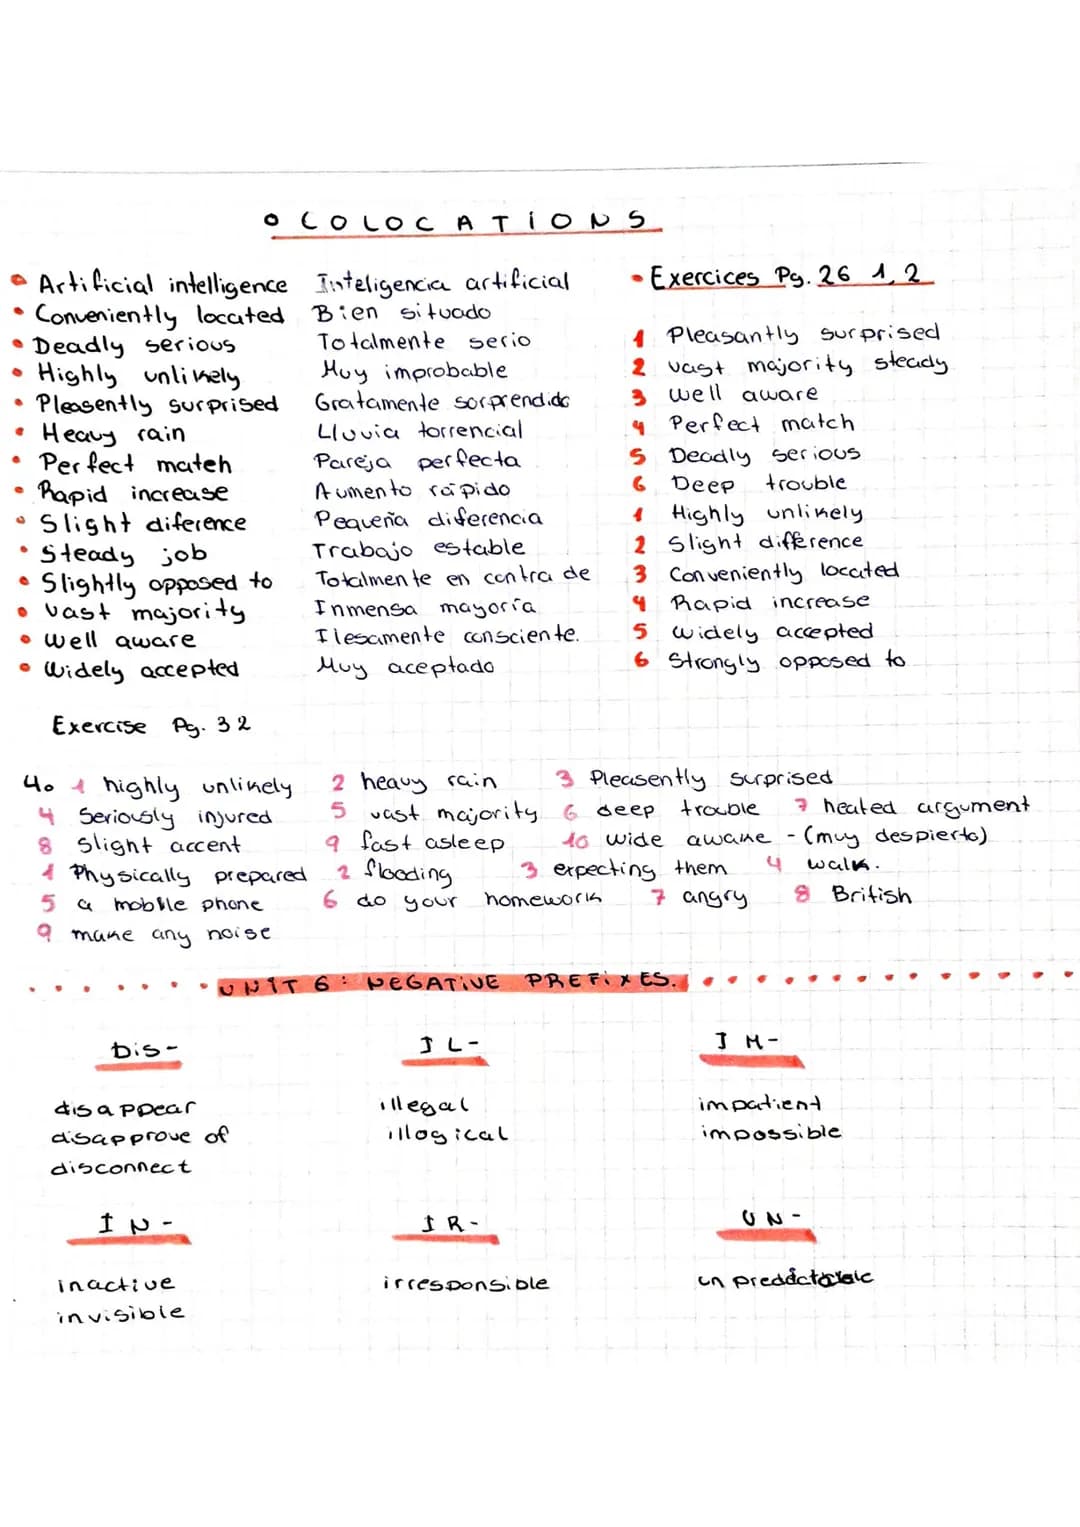 • COLOCATIONS
• Artificial intelligence Inteligencia artificial
• Conveniently located Bien situado
• Deadly serious Totalmente serio
• Highly unlikely Muy improbable
• Pleasently surprised Gratamente sorprendido
• Heavy rain Lluvia torrencial
• Perfect match Pareja perfecta
• Rapid increase Aumento rápido
• Slight diference Pequeña diferencia
• Steady job Trabajo estable
• Slightly opposed to Totalmente en contra de
• Vast majority Inmensa mayoría
• Well aware Ilesamente consciente.
• Widely accepted Muy aceptado
• Exercices Pg. 26 1, 2
1 Pleasantly surprised
2 Vast majority steady
3 Well aware
4 Perfect match
5 Deadly serious
6 Deep trouble
1 Highly unlikely
2 Slight difference
3 Conveniently located
4 Rapid increase
5 Widely accepted
6 Strongly opposed to
Exercise Pg. 32
4. 1 highly unlikely 2 heavy rain 3 Pleasently surprised
4 Seriously injured 5 vast majority 6 deep trouble 7 heated argument
8 Slight accent 9 fast asleep 10 wide awake - (muy despierto)
1 Physically prepared 2 flooding 3 expecting them 4 walk.
5 a mobile phone 6 do your homework 7 angry 8 British
9 make any noise
UNIT 6: NEGATIVE PREFIXES.
Dis- IL- IM-
disappear illegal impatient
disapprove of illogical impossible
disconnect
IN- IR- UN-
inactive irresponsible
invisible